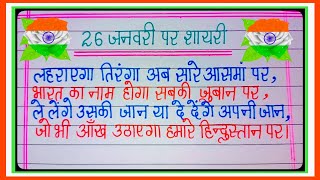 26 जनवरी पर शायरी
लहराएगा तिरंगा अब सारे आसमां पर,
भारत का नाम होगा सबकी ज़ुबान पर,
ले लेंगे उसकी जान या दे देंगे अपनी जान,
जो भी आँख उठाएगा हमारे हिन्दुस्तान पर।